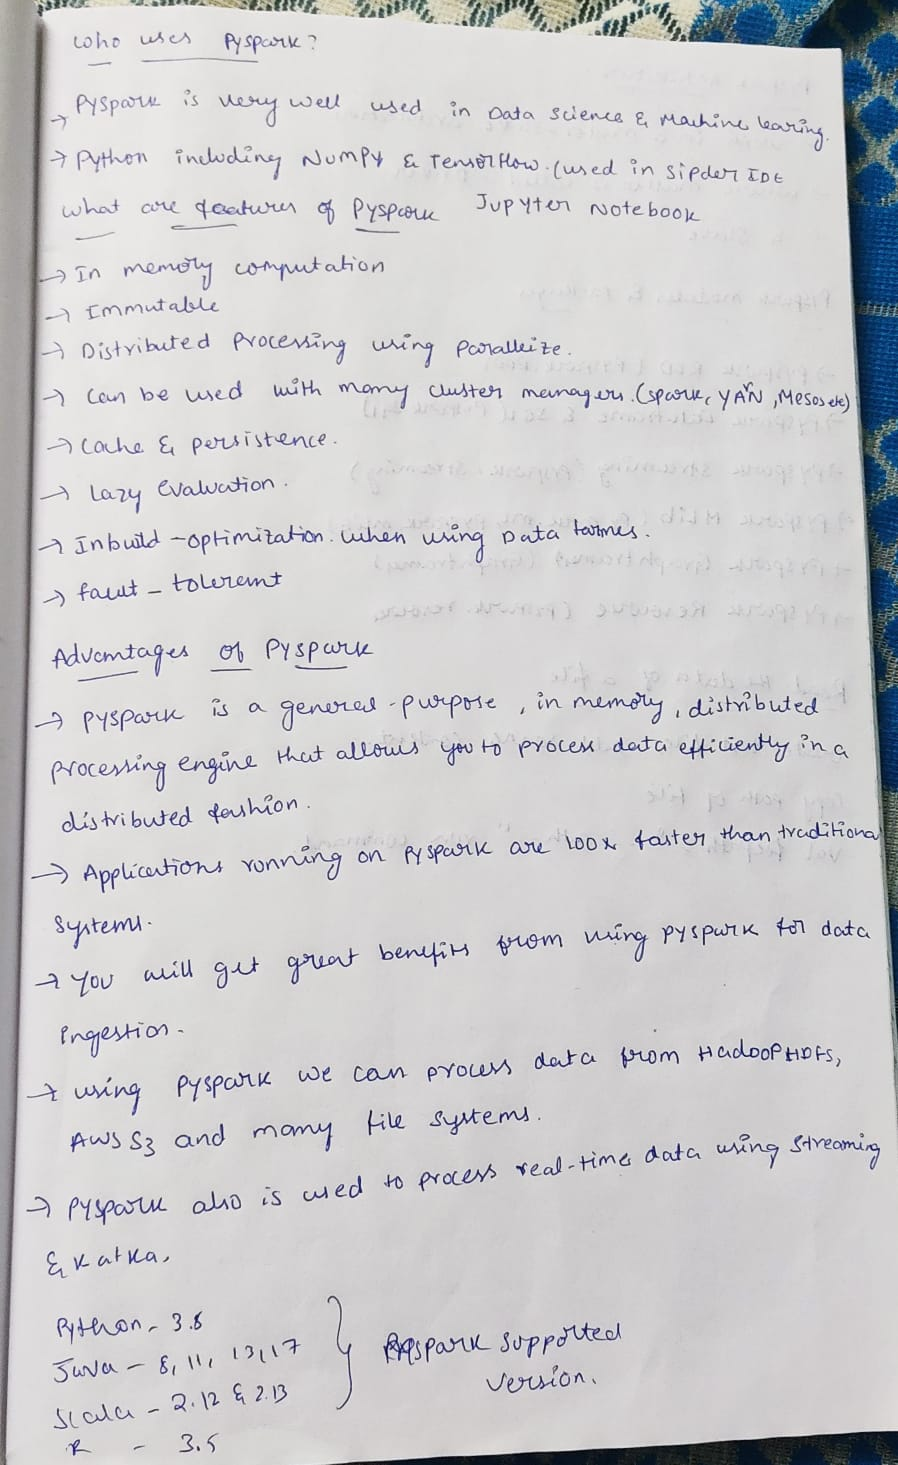 who uses Pyspark?
→ PySpark is very well used in Data Science & Machine learing.
→ Python including NumPy & TensorFlow. (used in Sipder IDE
what are features of Pyspark Jupyter Notebook
→ In memory computation
→ Immutable
→ Distributed Processing using Paralleize.
→ Can be used with many cluster manager. (spark, YARN, Mesos etc)
→ Cache & persistence.
→ Lazy Evaluation.
→ Inbuild - optimization. when using Data
→ fault - tolerant
Advantages of Pyspark
→ PySpark is a general-purpose, in memory, distributed
processing engine that allows you to process data efficiently in a
distributed fashion.
→ Applications running on PySpark are 100x faster than traditional
Systems.
→ You will get great benefits from using PySpark for data
ingestion.
→ using PySpark we can process data from Hadoop HDFS,
AWS S3 and many file systems.
→ PySpark also is used to process real-time data using Streaming
& Kafka,
Python - 3.8
Java - 8, 11, 13, 17 } PySpark Supported
Version.
Scala - 2.12 & 2.13
R - 3.5